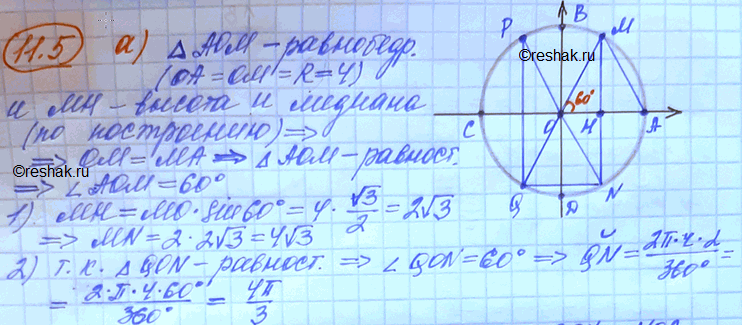 11.5 а) △ AOM – равнобедр.
(OA = OM = R = 4)
и MH – высота и медиана
(по построению) ⇒
⇒ OM = MA ⇒ △ AOM – равност.
⇒ ∠AOM = 60°
1). MH = MO · sin 60° = 4 · √3/2 = 2√3
⇒ MN = 2 · 2√3 = 4√3
2) т.к. △ QON – равност. ⇒ ∠QON = 60° ⇒ Q͝N = 2π·4·α/360° =
= 2·π·4·60°/360° = 4π/3
B
P
M
60°
C
O
H
A
Q
D
N
©reshak.ru
©reshak.ru
©reshak.ru
©reshak.ru